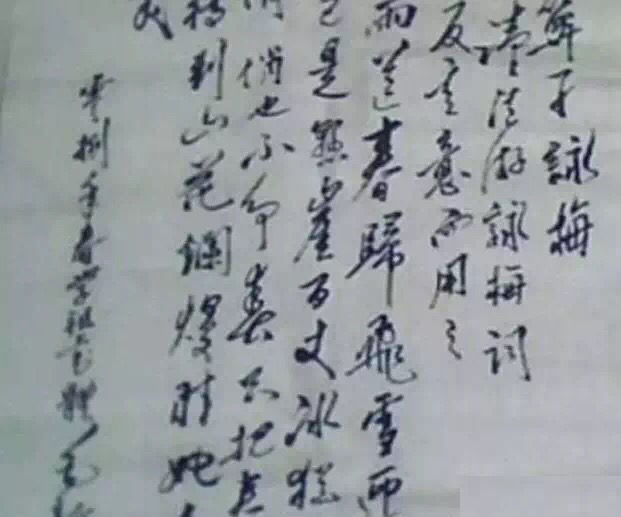 算子詠梅
陸游詠梅词
反其意而用之
雨送春歸飛雪迎
已是懸崖百丈冰猶
俏也不争春只把春
待到山花爛熳时她
零捌年春学